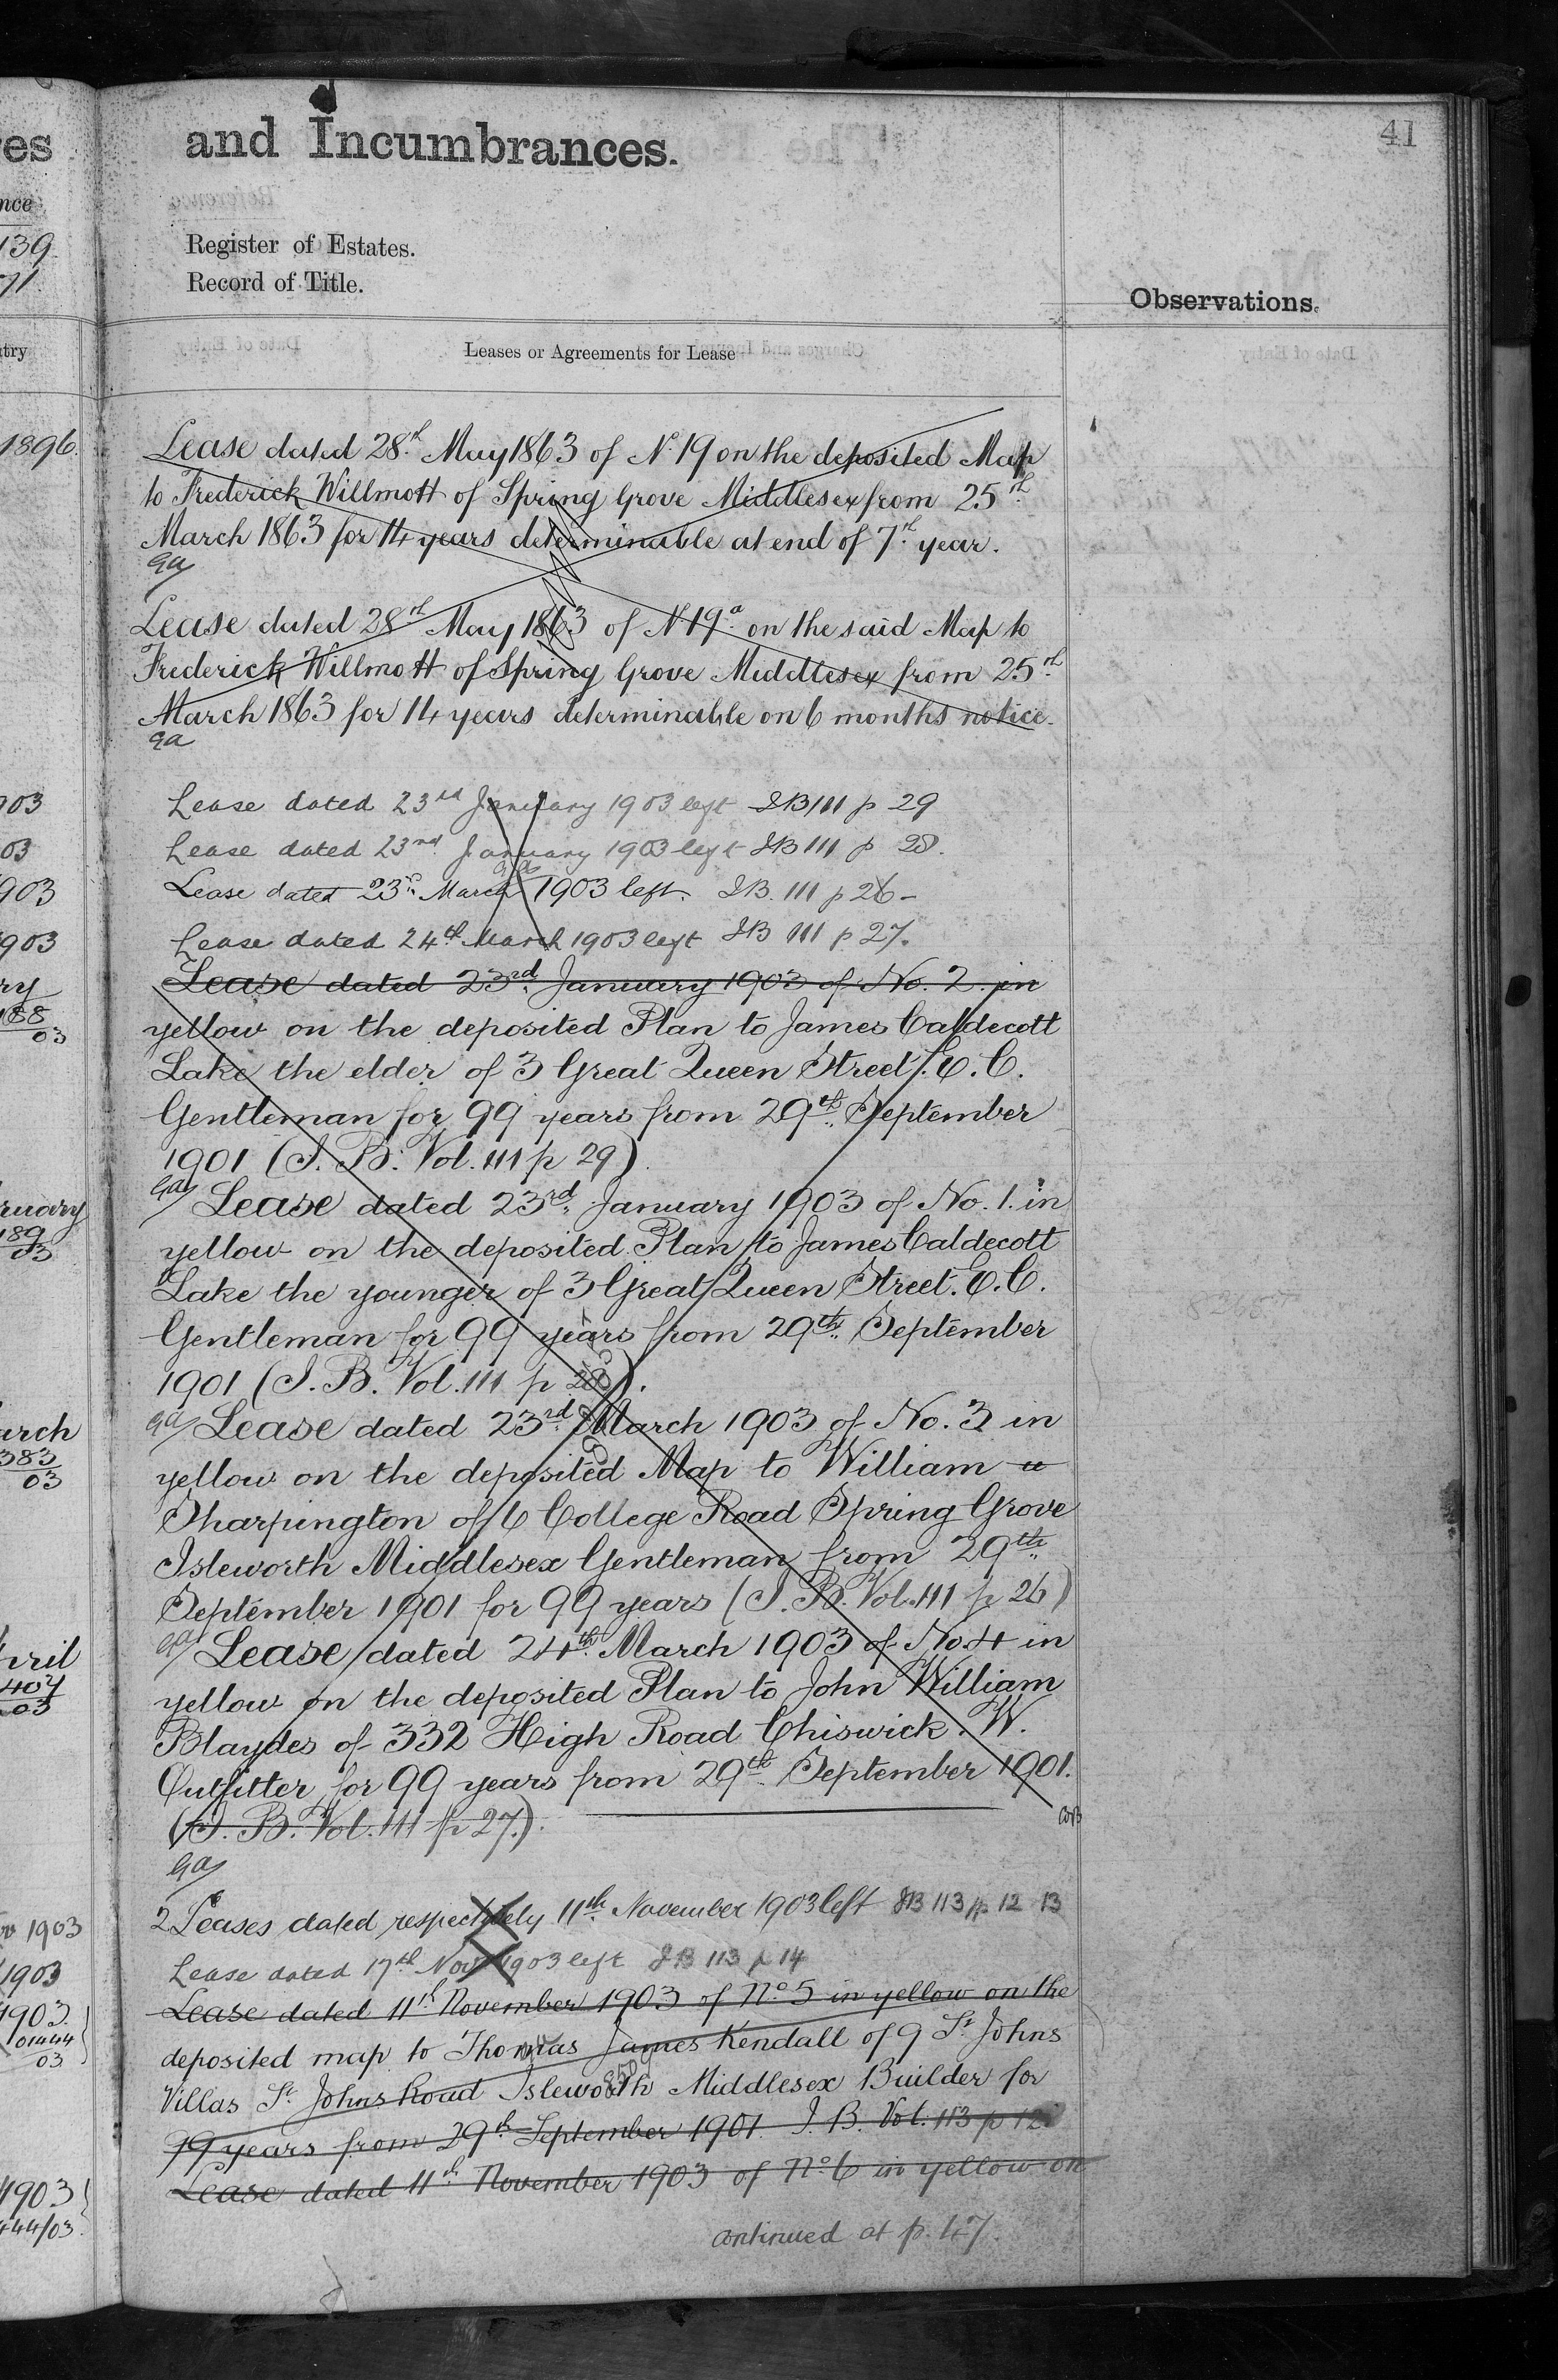 41
and Incumbrances.
Register of Estates.
Record of Title.
Observations.
Leases or Agreements for Lease
Lease dated 28th May 1863 of No 19 on the deposited Map
to Frederick Willmott of Spring Grove Middlesex from 25th
March 1863 for 14 years determinable at end of 7th year.
Lease dated 28th May 1863 of No 19a on the said Map to
Frederick Willmott of Spring Grove Middlesex from 25th
March 1863 for 14 years determinable on 6 months notice.
Lease dated 23rd January 1903 left IB 111 p 29
Lease dated 23rd January 1903 left IB 111 p 28.
Lease dated 23rd March 1903 left. IB. 111 p 26-
Lease dated 24th March 1903 left IB 111 p 27.
Lease dated 23rd January 1903 of No. 2 in
yellow on the deposited Plan to James Caldecott
Lake the elder of 3 Great Queen Street. E.C.
Gentleman for 99 years from 29th September
1901 (I.B. Vol. 111 p 29).
Lease dated 23rd January 1903 of No. 1. in
yellow on the deposited Plan to James Caldecott
Lake the younger of 3 Great Queen Street. E.C.
Gentleman for 99 years from 29th September
1901 (I.B. Vol. 111 p 28).
Lease dated 23rd March 1903 of No. 3 in
yellow on the deposited Map to William
Sharpington of 6 College Road Spring Grove
Isleworth Middlesex Gentleman from 29th
September 1901 for 99 years (I.B. Vol. 111 p 26)
Lease dated 24th March 1903 of No. 4 in
yellow on the deposited Plan to John William
Blaydes of 332 High Road Chiswick. W.
Outfitter for 99 years from 29th September 1901.
(I.B. Vol. 111 p 27.).
2 Leases dated respectively 11th November 1903 left IB 113 pp 12 13
Lease dated 17th Nov 1903 left IB 113 p 14
Lease dated 11th November 1903 of No 5 in yellow on the
deposited map to Thomas James Kendall of 9 St Johns
Villas St Johns Road Isleworth Middlesex Builder for
99 years from 29th September 1901. I.B. Vol. 113 p 12
Lease dated 11th November 1903 of No 6 in yellow on
continued at p. 47.